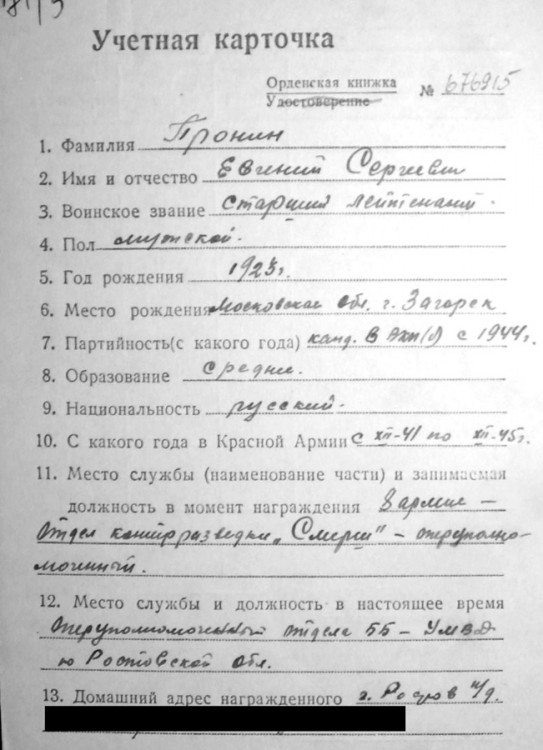 Учетная карточка
Орденская книжка
Удостоверение № 676915
1. Фамилия Пронин
2. Имя и отчество Евгений Сергеевич
3. Воинское звание старший лейтенант.
4. Пол мужской.
5. Год рождения 1923г.
6. Место рождения Московская обл. г. Загорск
7. Партийность(с какого года) канд. ВКП(б) с 1944г.
8. Образование средн.
9. Национальность русский.
10. С какого года в Красной Армии с XII-41 по XII-45г.
11. Место службы (наименование части) и занимаемая
должность в момент награждения 8 армия —
Отдел контрразведки „Смерш" — оперуполно-
моченный.
12. Место службы и должность в настоящее время
Оперуполномоченный отдела ББ — УМВД
по Ростовской обл.
13. Домашний адрес награжденного г. Ростов н/Д.